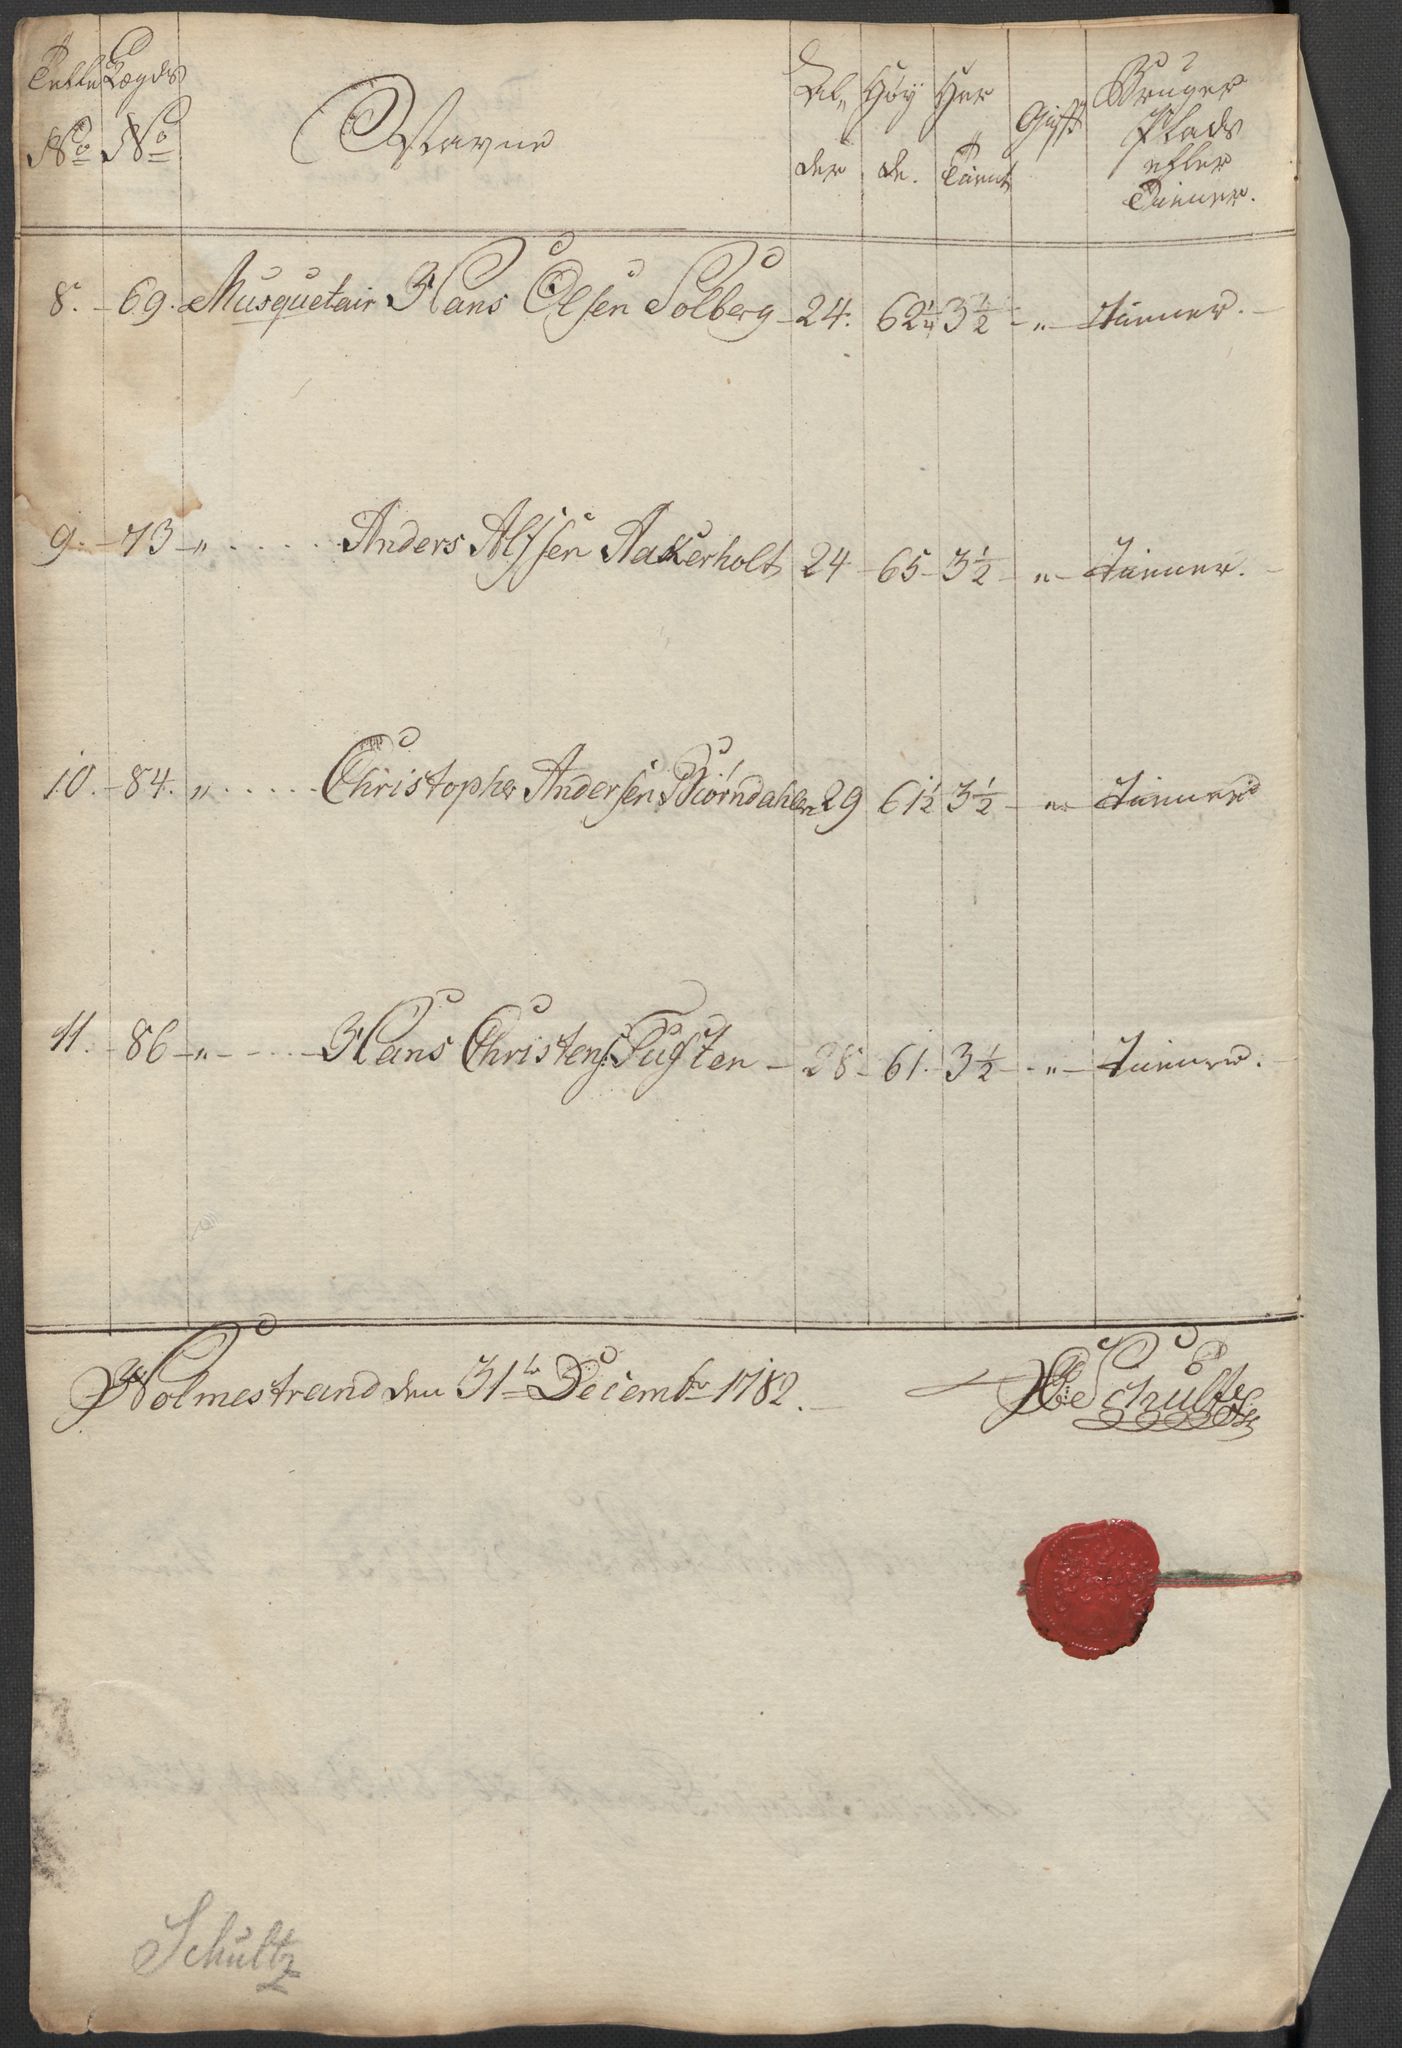 Lægds
No No
Navne
Al, Høy Her
der de. Tient
Gift
Bruger
Plads
eller
Tiener.
8. 69. Musquetair Hans Olsen Solberg 24. 62 1/4 3 1/2 " tiener.
9. 73 " Anders Alfsen Aakerholt 24 65 3 1/2 " tiener.
10. 84. " Christopher Andersen Biørndahlen 29 61 1/2 3 1/2 " tiener
11. 86 " Hans Christens: Tufften 28 61. 3 1/2 " tiener.
Holmestrand den 31te Decembr 1782.
Schultz
Schultz